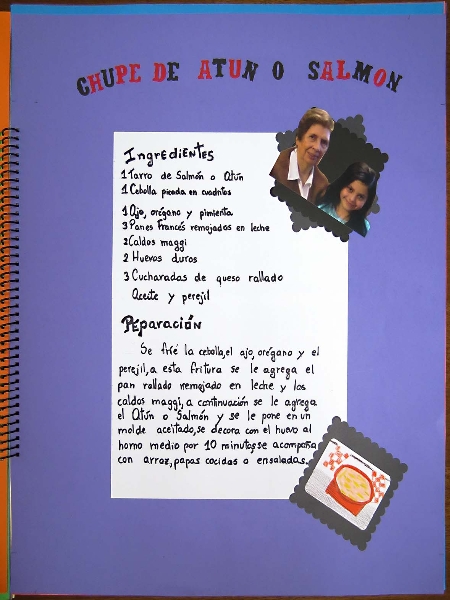 CHUPE DE ATUN O SALMON
IngrEdiENtES
1 Tarro de Salmón o Atún
1 Cebolla picada en cuadritos
1 Ajo, orégano y pimienta
3 Panes Francés remojados en leche
2 Caldos maggi
2 Huevos duros
3 Cucharadas de queso rallado
Aceite y perejil
PEparación
Se fríe la cebolla, el ajo, orégano y el
perejil, a esta fritura se le agrega el
pan rallado remojado en leche y los
caldos maggi, a continuación se le agrega
el Atún o Salmón y se le pone en un
molde aceitado, se decora con el huevo al
horno medio por 10 minutos se acompaña
con arroz, papas cocidas o ensaladas.